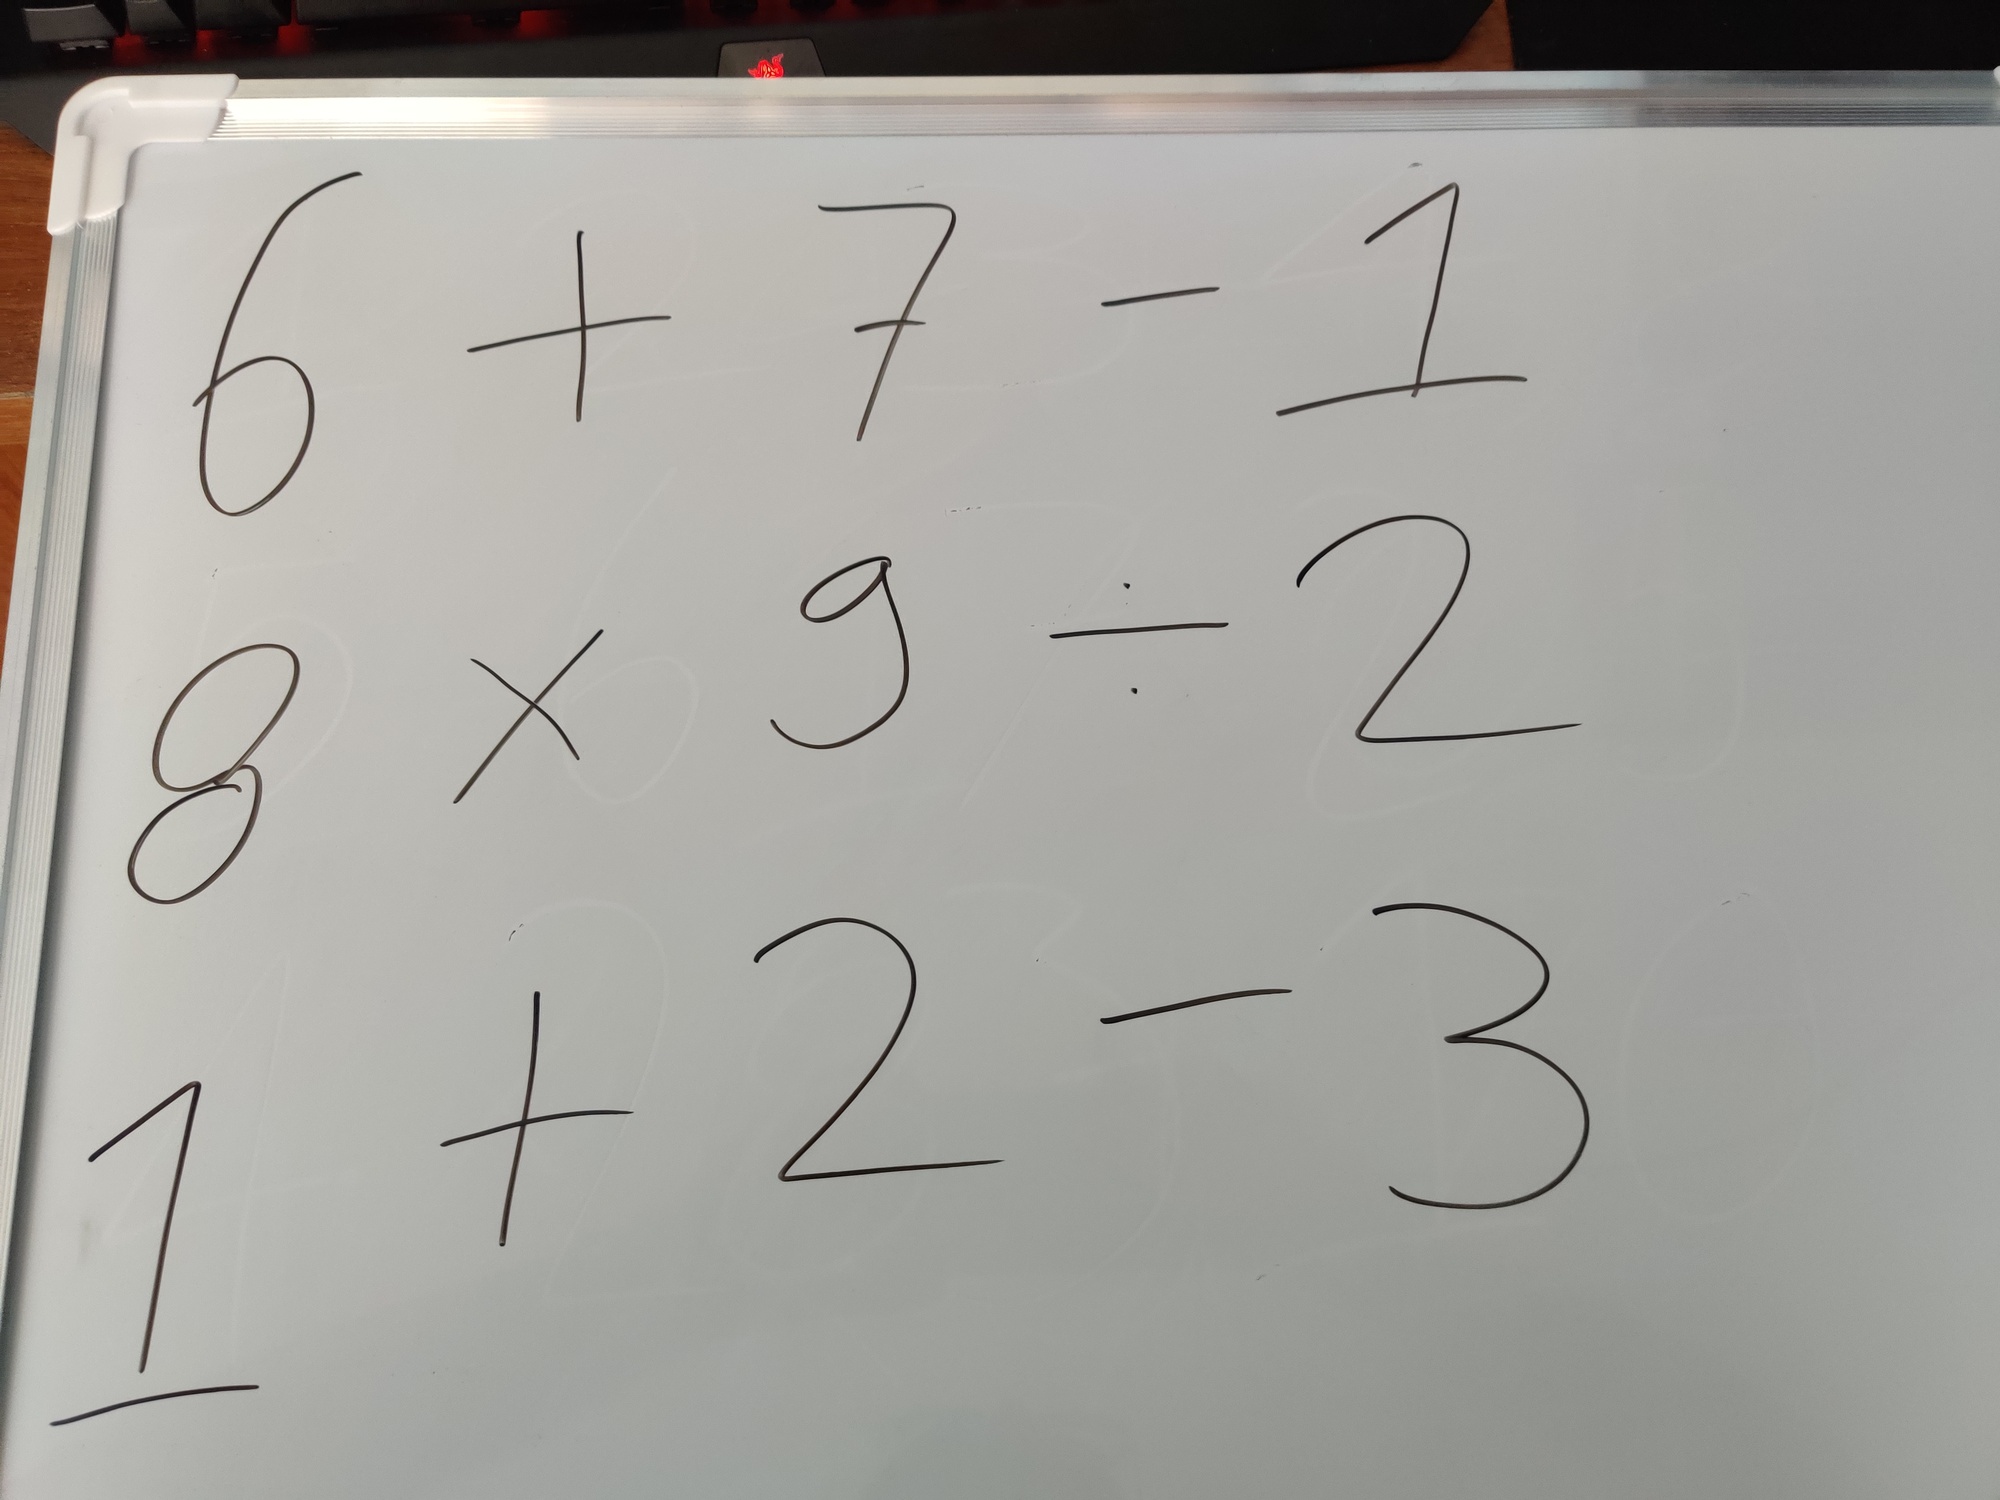 6 + 7 - 1
8 × 9 ÷ 2
1 + 2 - 3